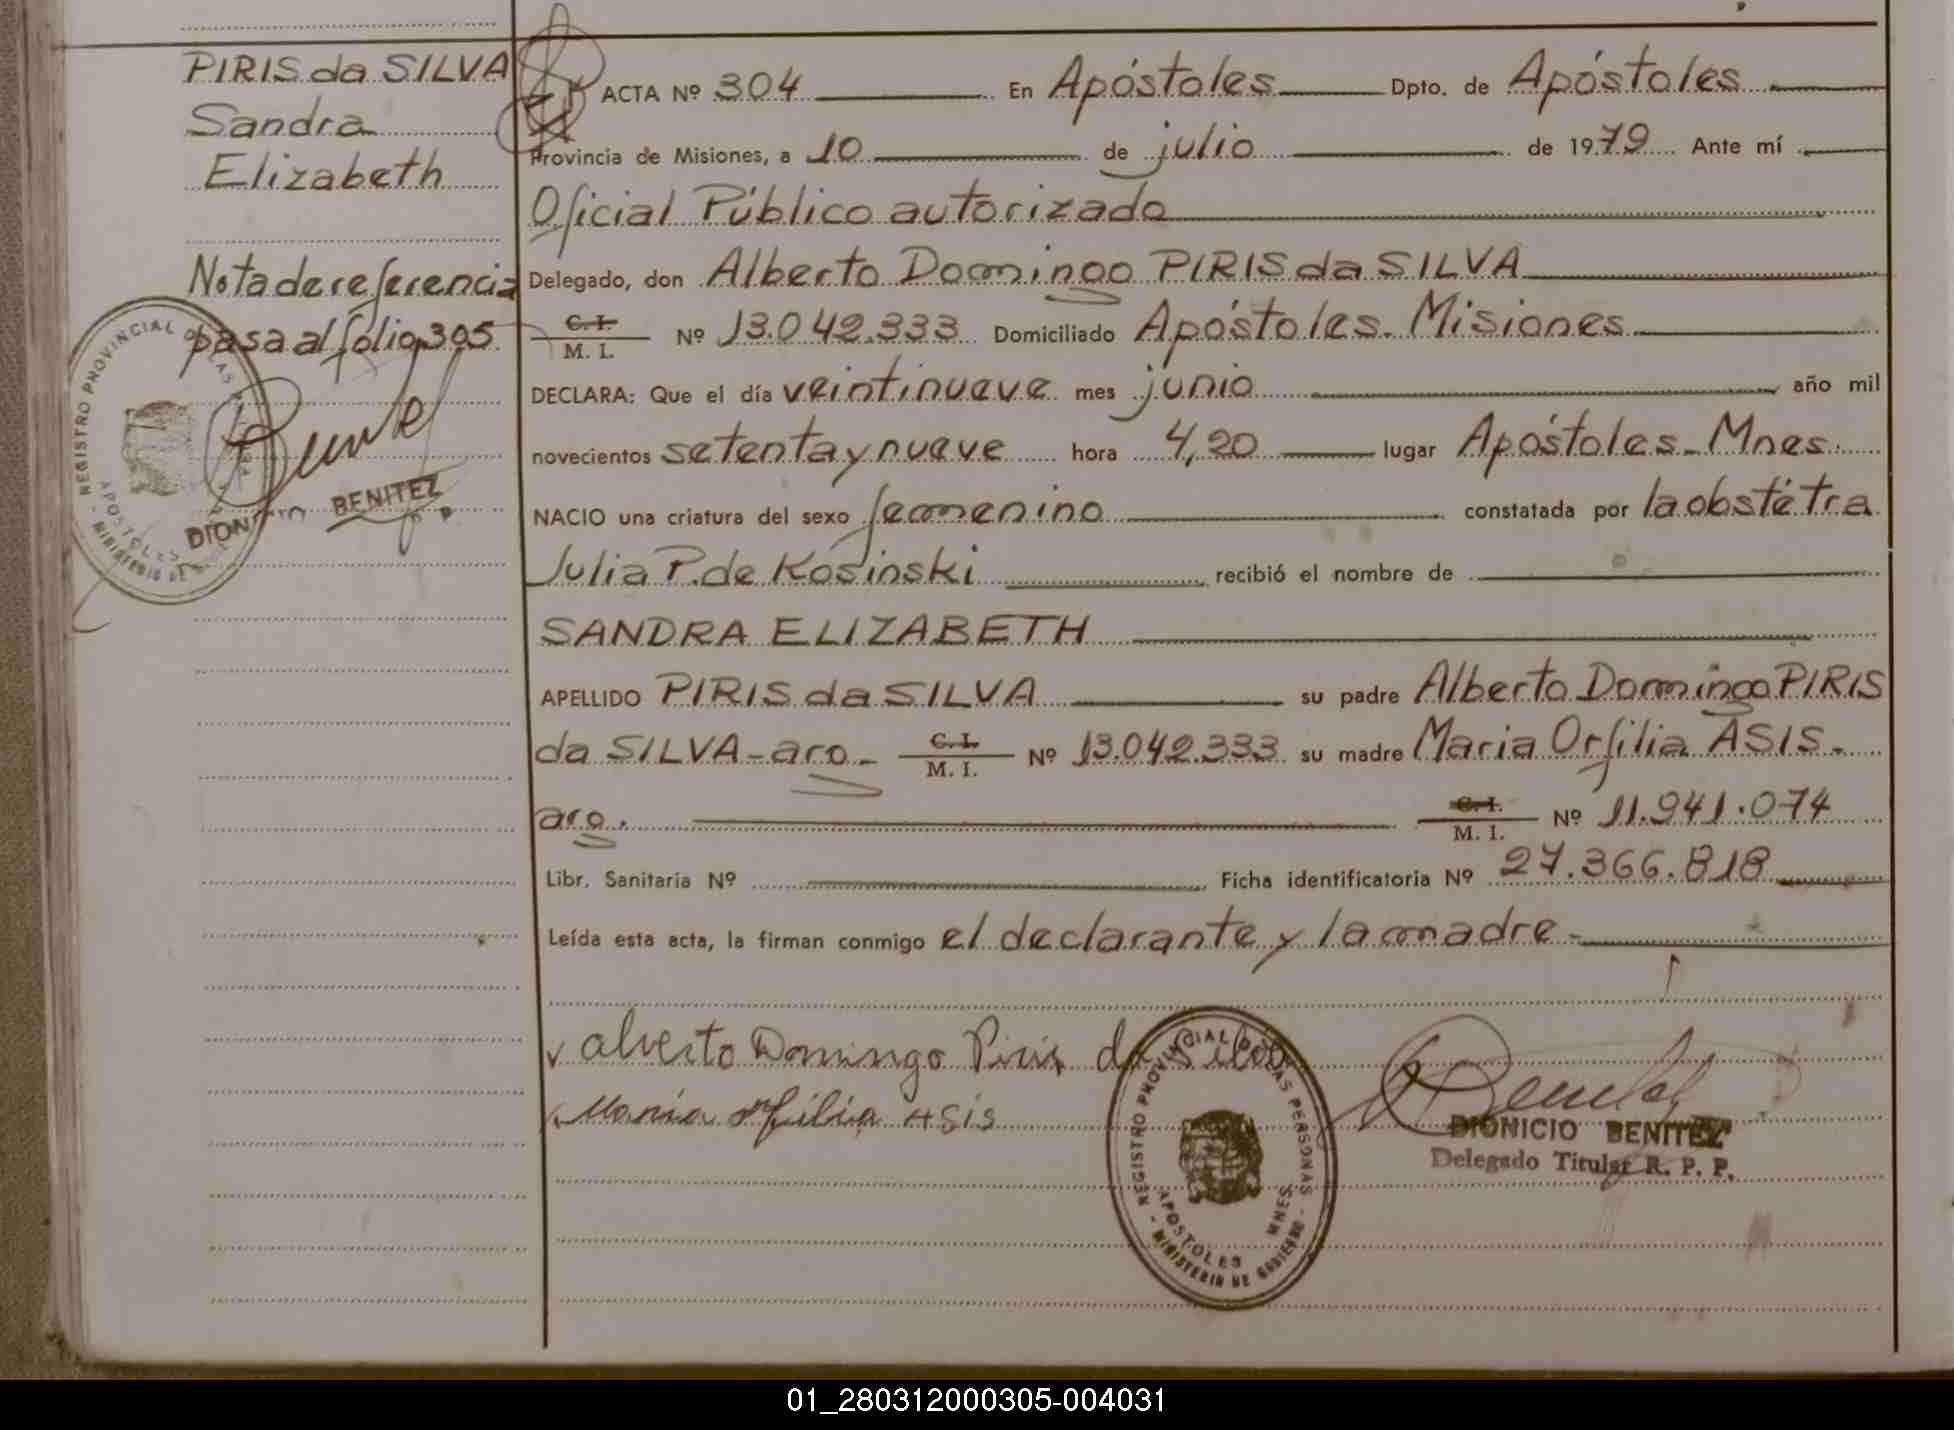 PIRIS da SILVA
Sandra
Elizabeth
Nota de referencia
pasa al folio 305
REGISTRO PROVINCIAL DE LAS
APOSTOLES
MINISTERIO DE
BENITEZ
ACTA Nº 304 En Apóstoles Dpto. de Apóstoles
Provincia de Misiones, a 10 de julio de 1979 Ante mí
Oficial Público autorizado
Delegado, don Alberto Domingo PIRIS da SILVA
C. I. / M. I. Nº 13.042.333 Domiciliado Apóstoles. Misiones
DECLARA: Que el día veintinueve mes junio año mil
novecientos setenta y nueve hora 4,20 lugar Apóstoles - Mnes.
NACIO una criatura del sexo femenino constatada por la obstétra
Julia P. de Kosinski recibió el nombre de
SANDRA ELIZABETH
APELLIDO PIRIS da SILVA su padre Alberto Domingo PIRIS
da SILVA - aro - C. I. / M. I. Nº 13.042.333 su madre Maria Orfilia ASIS -
aro. C. I. / M. I. Nº 11.941.074
Libr. Sanitaria Nº Ficha identificatoria Nº 27.366.818
Leída esta acta, la firman conmigo el declarante y la madre -
alverto Domingo Piris da Silva
Maria orfilia Asis
REGISTRO PROVINCIAL DE LAS PERSONAS
APOSTOLES MNES.
MINISTERIO DE GOBIERNO
DIONICIO BENITEZ
Delegado Titular R. P. P.
01_280312000305-004031